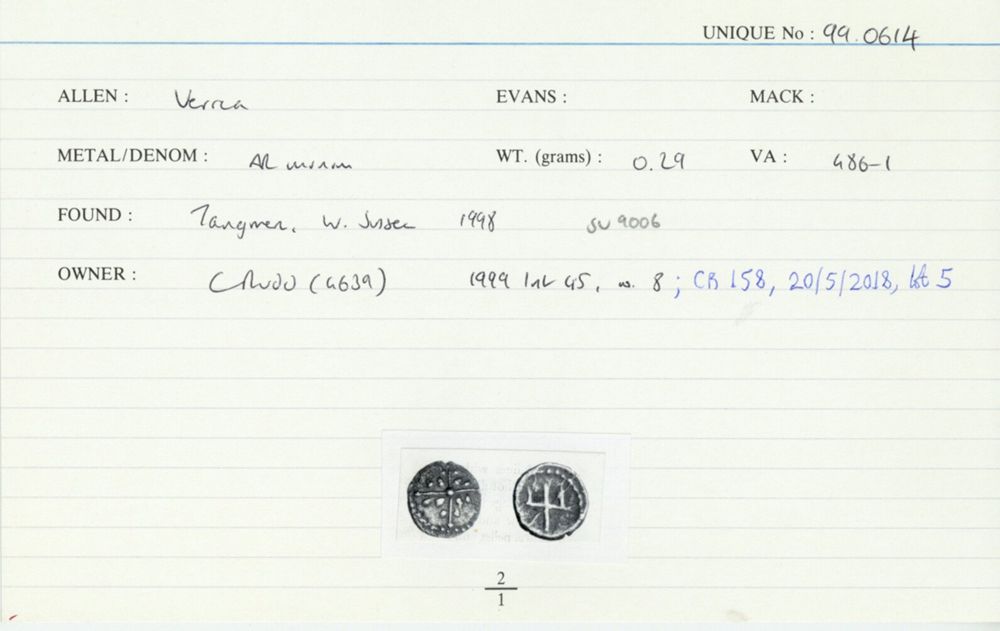 UNIQUE No : 99.0614
ALLEN : Verica EVANS : MACK :
METAL/DENOM : AR minim WT. (grams) : 0.29 VA : 486-1
FOUND : Tangmere, W. Sussex 1998 SU 9006
OWNER : C Rudd (4639) 1999 list 45, no. 8 ; CR 158, 20/5/2018, lot 5
2
1